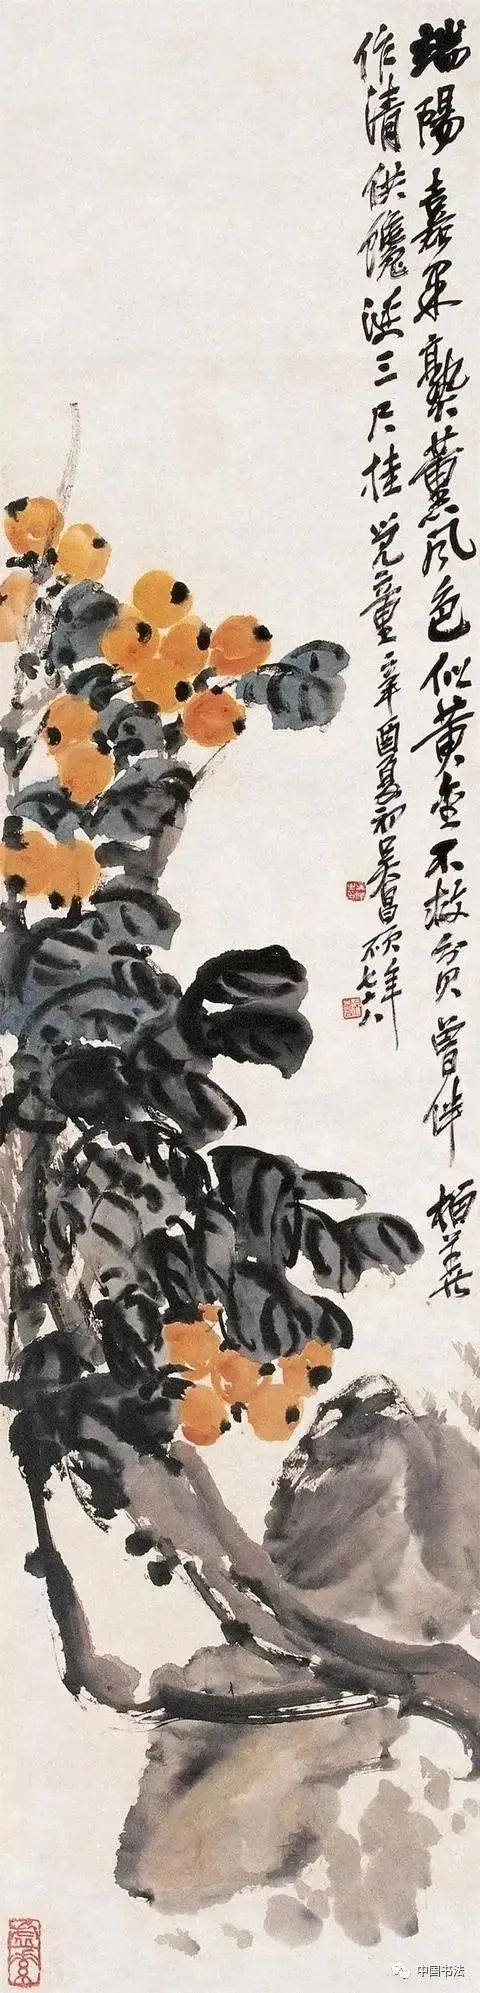 端陽嘉果熟薰風色似黃金不救貧曾伴榴花
作清供饞涎三尺挂兒童辛酉夏初吳昌碩年七十八
中国书法